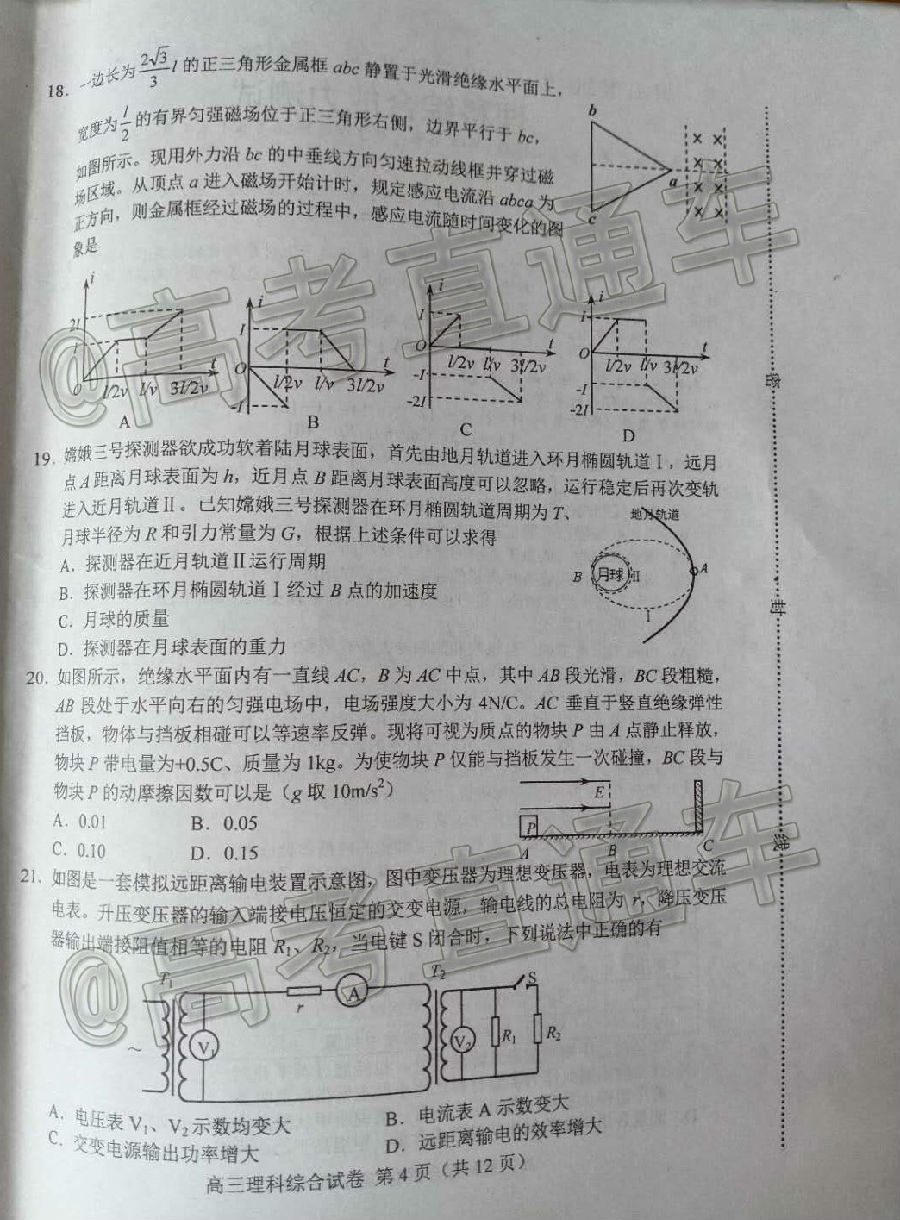 18. 一边长为2√3/3 l 的正三角形金属框 abc 静置于光滑绝缘水平面上，
宽度为l/2的有界匀强磁场位于正三角形右侧，边界平行于 bc，
如图所示。现用外力沿 bc 的中垂线方向匀速拉动线框并穿过磁
场区域。从顶点 a 进入磁场开始计时，规定感应电流沿 abca 为
正方向，则金属框经过磁场的过程中，感应电流随时间变化的图
象是
b
× ×
× ×
a
× ×
c
× ×
i 2I I O l/2v l/v 3l/2v t
A
i I O -I l/2v l/v 3l/2v t
B
i I O -I -2I l/2v l/v 3l/2v t
C
i I O -I -2I l/2v l/v 3l/2v t
D
19. 嫦娥三号探测器欲成功软着陆月球表面，首先由地月轨道进入环月椭圆轨道Ⅰ，远月
点A距离月球表面为 h，近月点 B 距离月球表面高度可以忽略，运行稳定后再次变轨
进入近月轨道Ⅱ。已知嫦娥三号探测器在环月椭圆轨道周期为 T、
月球半径为 R 和引力常量为 G，根据上述条件可以求得
地月轨道
A. 探测器在近月轨道Ⅱ运行周期
B. 探测器在环月椭圆轨道Ⅰ经过 B 点的加速度
B 月球 Ⅱ A
Ⅰ
C. 月球的质量
D. 探测器在月球表面的重力
20. 如图所示，绝缘水平面内有一直线 AC，B 为 AC 中点，其中 AB 段光滑，BC 段粗糙，
AB 段处于水平向右的匀强电场中，电场强度大小为 4N/C。AC 垂直于竖直绝缘弹性
挡板，物体与挡板相碰可以等速率反弹。现将可视为质点的物块 P 由 A 点静止释放，
物块 P 带电量为+0.5C、质量为 1kg。为使物块 P 仅能与挡板发生一次碰撞，BC 段与
物块 P 的动摩擦因数可以是（g 取 10m/s²）
A. 0.01 B. 0.05
C. 0.10 D. 0.15
E
P
A B C
21. 如图是一套模拟远距离输电装置示意图，图中变压器为理想变压器，电表为理想交流
电表。升压变压器的输入端接电压恒定的交变电源，输电线的总电阻为 r，降压变压
器输出端接阻值相等的电阻 R₁、R₂，当电键 S 闭合时，下列说法中正确的有
T₂ S
r A
~ V₁ V₂ R₁ R₂
A. 电压表 V₁、V₂示数均变大
B. 电流表 A 示数变大
C. 交变电源输出功率增大
D. 远距离输电的效率增大
高三理科综合试卷 第 4 页（共 12 页）
密
封
线
@高考直通车
@高考直通车